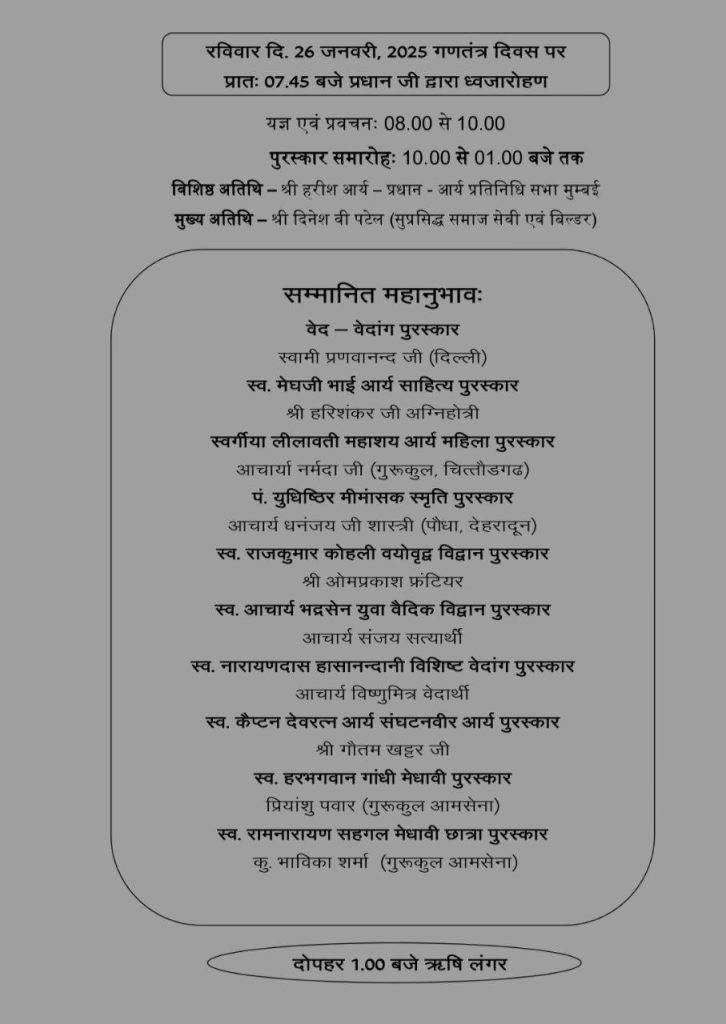 रविवार दि. 26 जनवरी, 2025 गणतंत्र दिवस पर
प्रातः 07.45 बजे प्रधान जी द्वारा ध्वजारोहण
यज्ञ एवं प्रवचनः 08.00 से 10.00
पुरस्कार समारोहः 10.00 से 01.00 बजे तक
विशिष्ठ अतिथि – श्री हरीश आर्य – प्रधान - आर्य प्रतिनिधि सभा मुम्बई
मुख्य अतिथि – श्री दिनेश वी पटेल (सुप्रसिद्ध समाज सेवी एवं बिल्डर)
सम्मानित महानुभावः
वेद – वेदांग पुरस्कार
स्वामी प्रणवानन्द जी (दिल्ली)
स्व. मेघजी भाई आर्य साहित्य पुरस्कार
श्री हरिशंकर जी अग्निहोत्री
स्वर्गीया लीलावती महाशय आर्य महिला पुरस्कार
आचार्या नर्मदा जी (गुरूकुल, चित्तौडगढ)
पं. युधिष्ठिर मीमांसक स्मृति पुरस्कार
आचार्य धनंजय जी शास्त्री (पौधा, देहरादून)
स्व. राजकुमार कोहली वयोवृद्व विद्वान पुरस्कार
श्री ओमप्रकाश फ्रंटियर
स्व. आचार्य भद्रसेन युवा वैदिक विद्वान पुरस्कार
आचार्य संजय सत्यार्थी
स्व. नारायणदास हासानन्दानी विशिष्ट वेदांग पुरस्कार
आचार्य विष्णुमित्र वेदार्थी
स्व. कैप्टन देवरत्न आर्य संघटनवीर आर्य पुरस्कार
श्री गौतम खट्टर जी
स्व. हरभगवान गांधी मेधावी पुरस्कार
प्रियांशु पवार (गुरूकुल आमसेना)
स्व. रामनारायण सहगल मेधावी छात्रा पुरस्कार
कु. भाविका शर्मा (गुरूकुल आमसेना)
दोपहर 1.00 बजे ऋषि लंगर